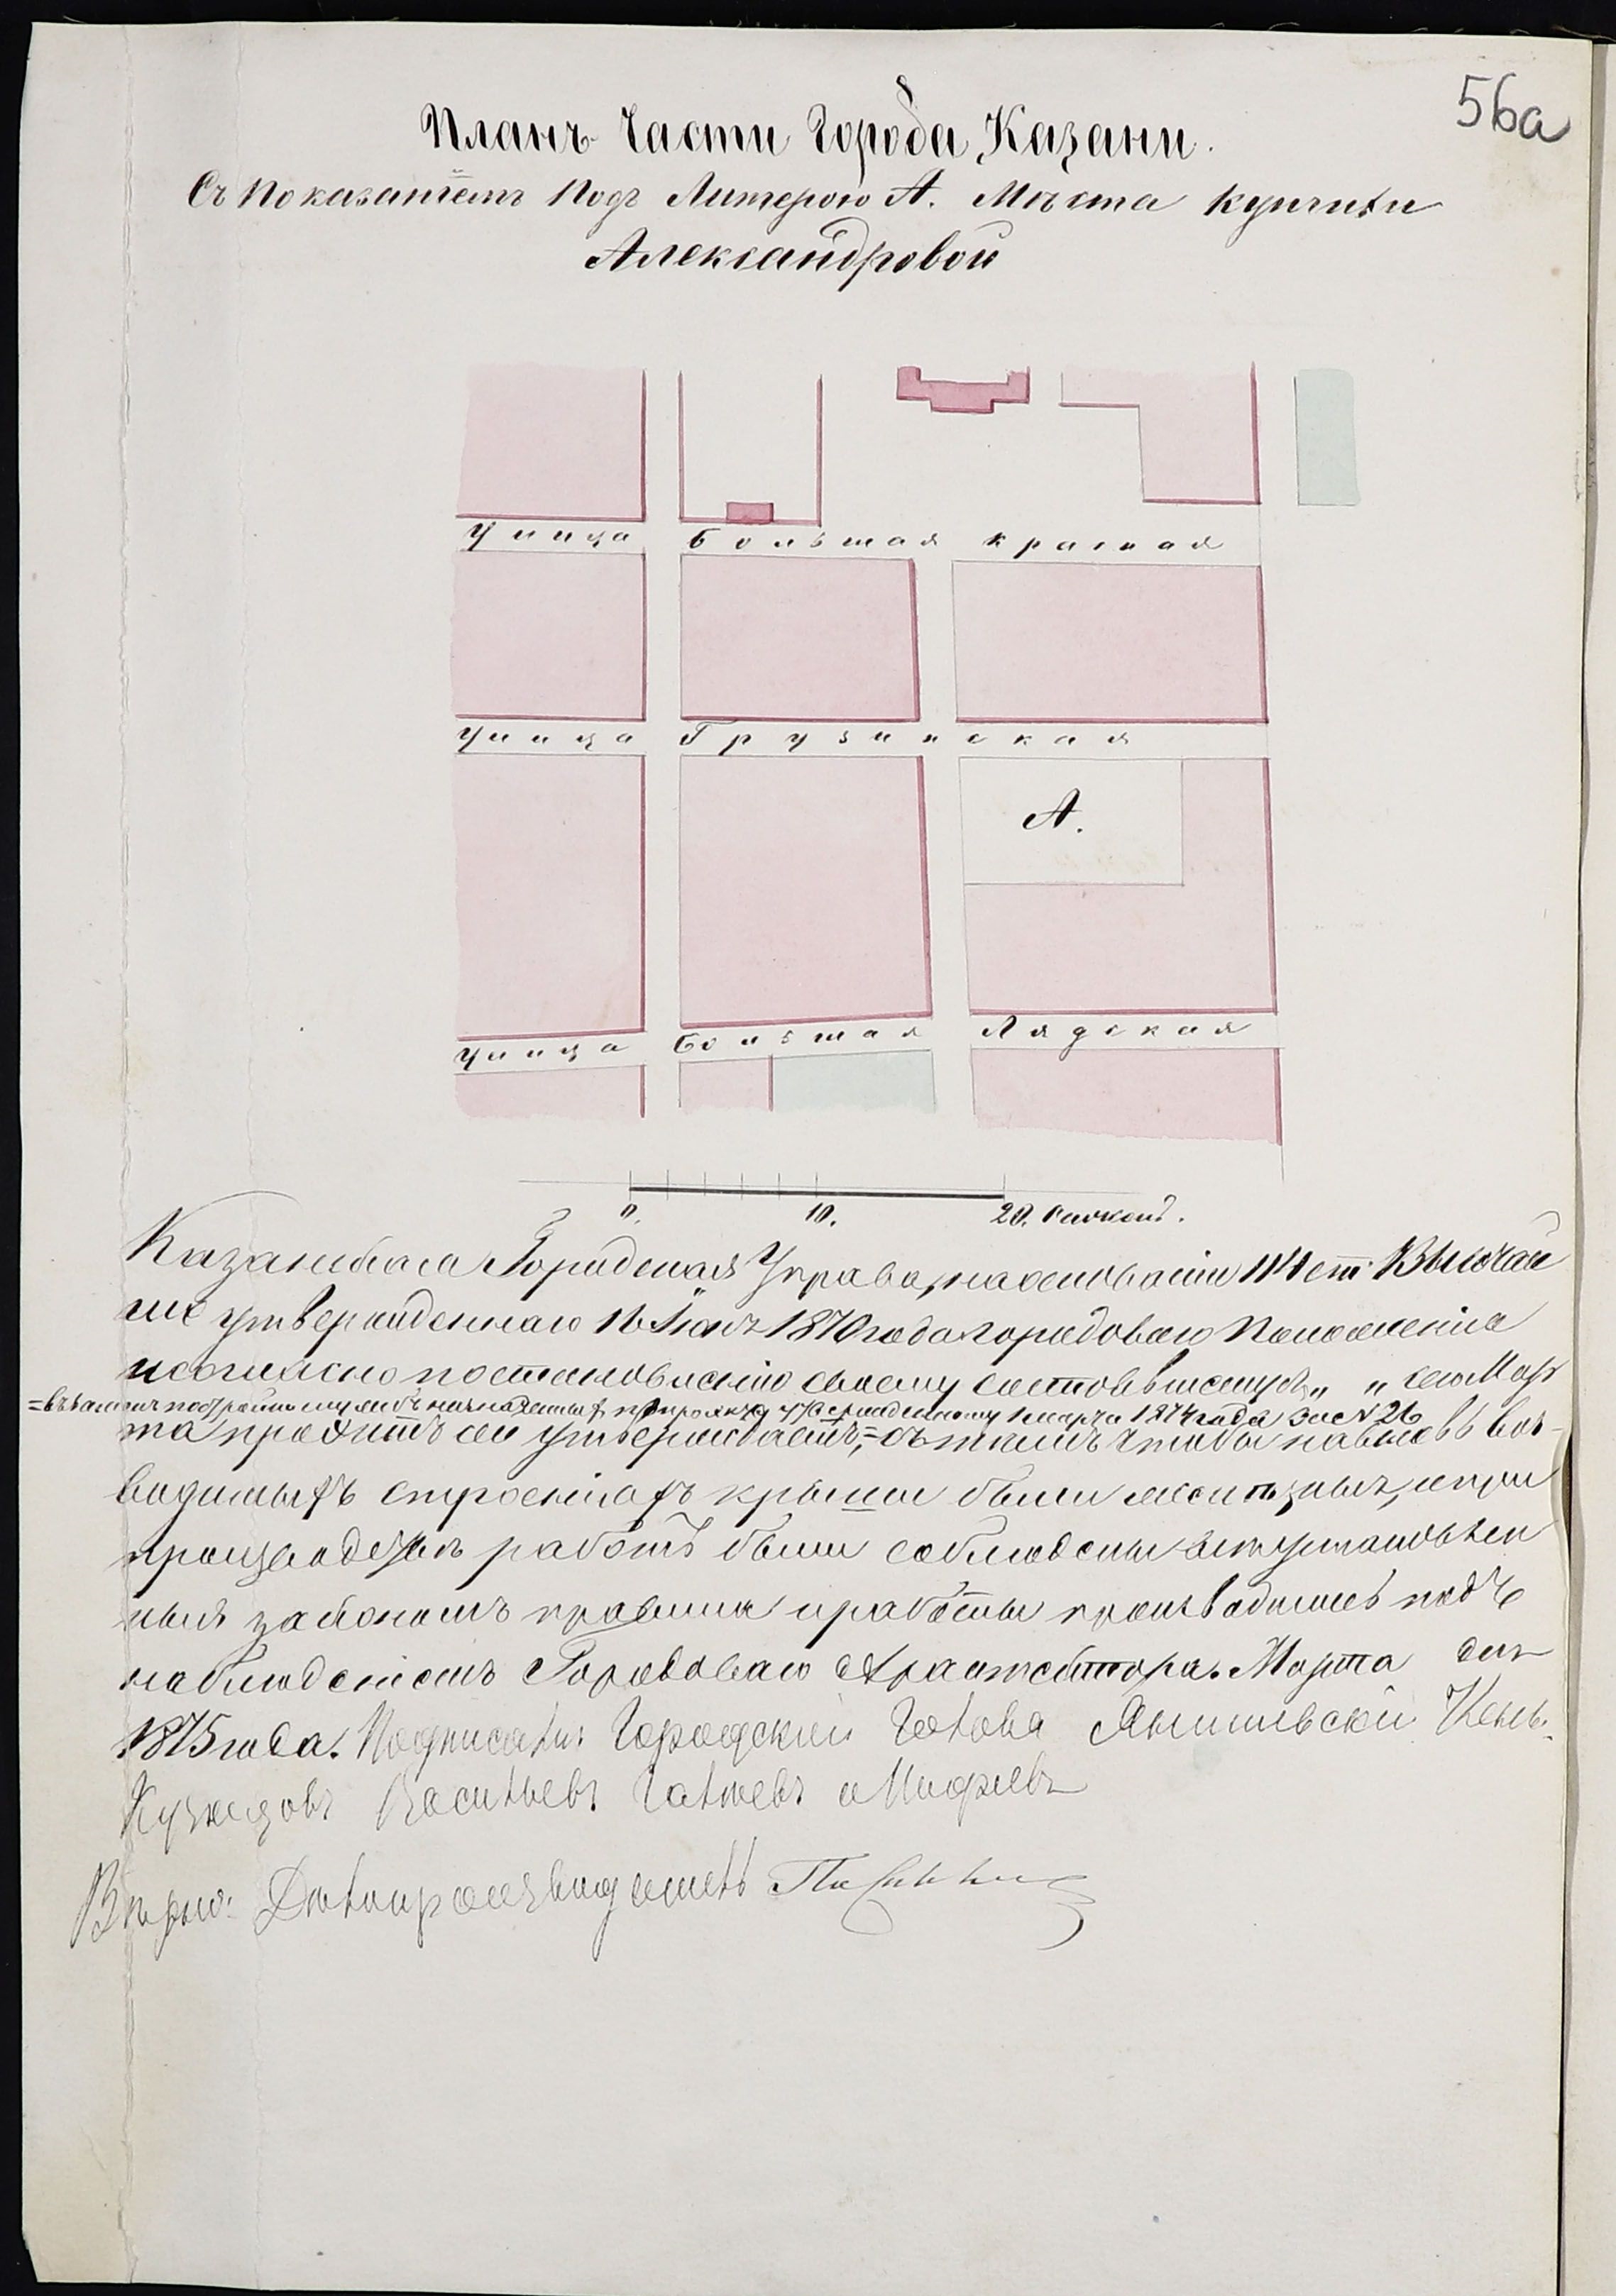 56а
Планъ Части Города Казани.
Съ Показаніемъ Подъ Литерою А. Мѣста купчихи
Александровой
Улица Большая красная
Улица Грузинская
А.
Улица Большая Лядская
0. 10. 20. Саженъ.
Казанская Городская Управа, на основаніи 114 ст. Высочай
ше утвержденнаго 16 Іюня 1870 года городоваго Положенія
и согласно постановленію своему состоявшемуся „ „ сего Мар
=въ замѣнъ построй назначенныхъ по проэкту утвержденному 1 марта 1874 года за № 26
та проэктъ сей утверждаетъ,= съ тѣмъ чтобы на вновь воз-
водимыхъ строеніяхъ крыши были желѣзныя, и при
производствѣ работъ были соблюдены всѣ установлен
ныя закономъ правила и работы производились подъ
наблюденіемъ Городоваго Архитектора. Марта дня
1875 года. Подписали: Городской Голова Янишевскій Члены:
Кузнецовъ Васильевъ и
Вѣрно: Дѣлопроизводитель